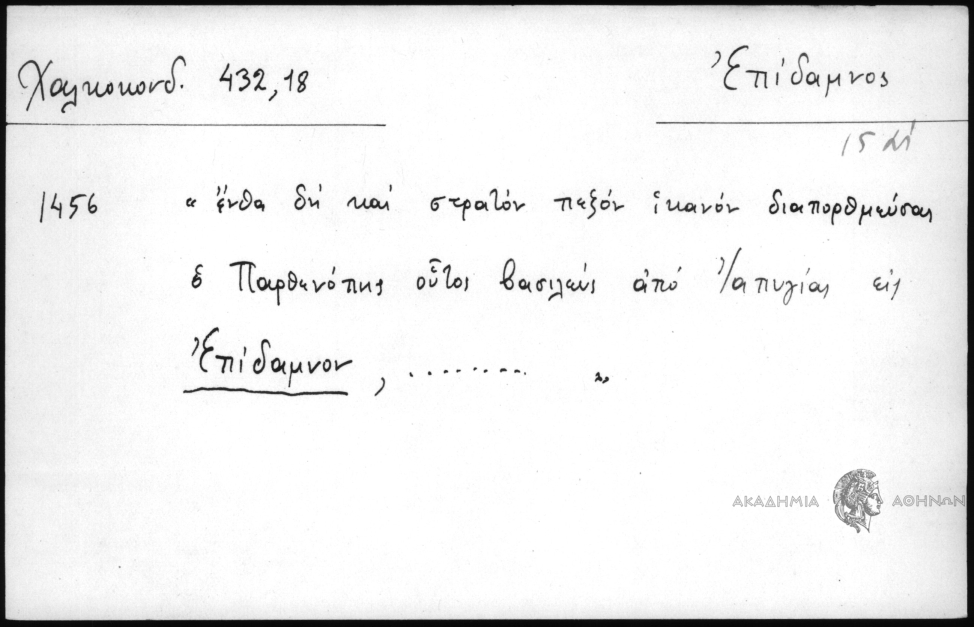 Χαλκοκονδ. 432,18
Ἐπίδαμνος
15 αἰ
1456 « ἔνθα δή καί στρατόν πεζόν ἱκανόν διαπορθμεύσας
ὁ Παρθενόπης οὗτος βασιλεύς ἀπό Ἰαπυγίας εἰς
Ἐπίδαμνον, ........ »
ΑΚΑΔΗΜΙΑ ΑΘΗΝΩΝ